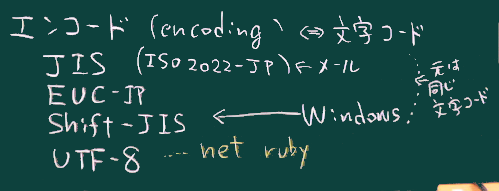 エンコード (encoding) ⇔ 文字コード
JIS (ISO2022-JP) ← メール
EUC-JP
Shift-JIS ← Windows
UTF-8 ---- net ruby
元は
同じ
文字コード